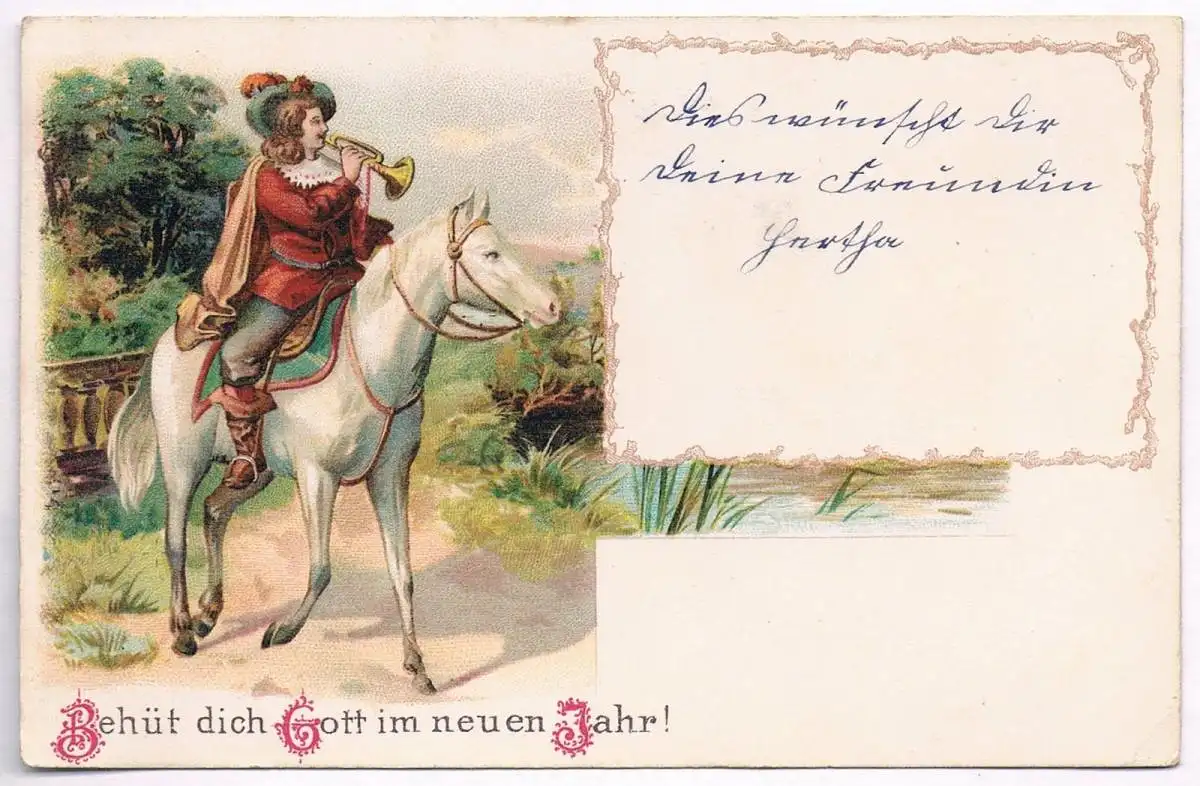 Dies wünscht Dir
Deine Freundin
Hertha
Behüt dich Gott im neuen Jahr!